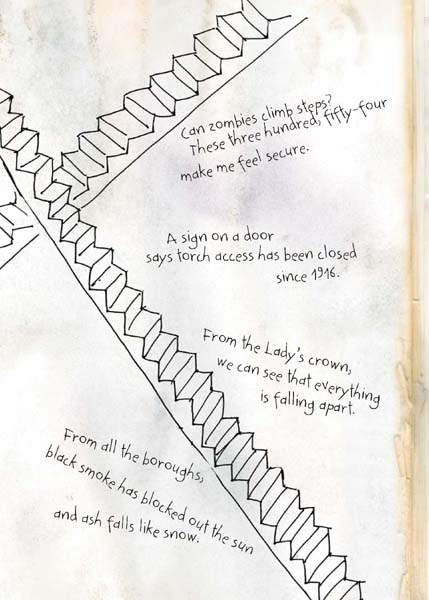 Can zombies climb steps?
These three hundred, fifty-four
make me feel secure.
A sign on a door
says torch access has been closed
since 1916.
From the Lady's crown,
we can see that everything
is falling apart.
From all the boroughs,
black smoke has blocked out the sun
and ash falls like snow.